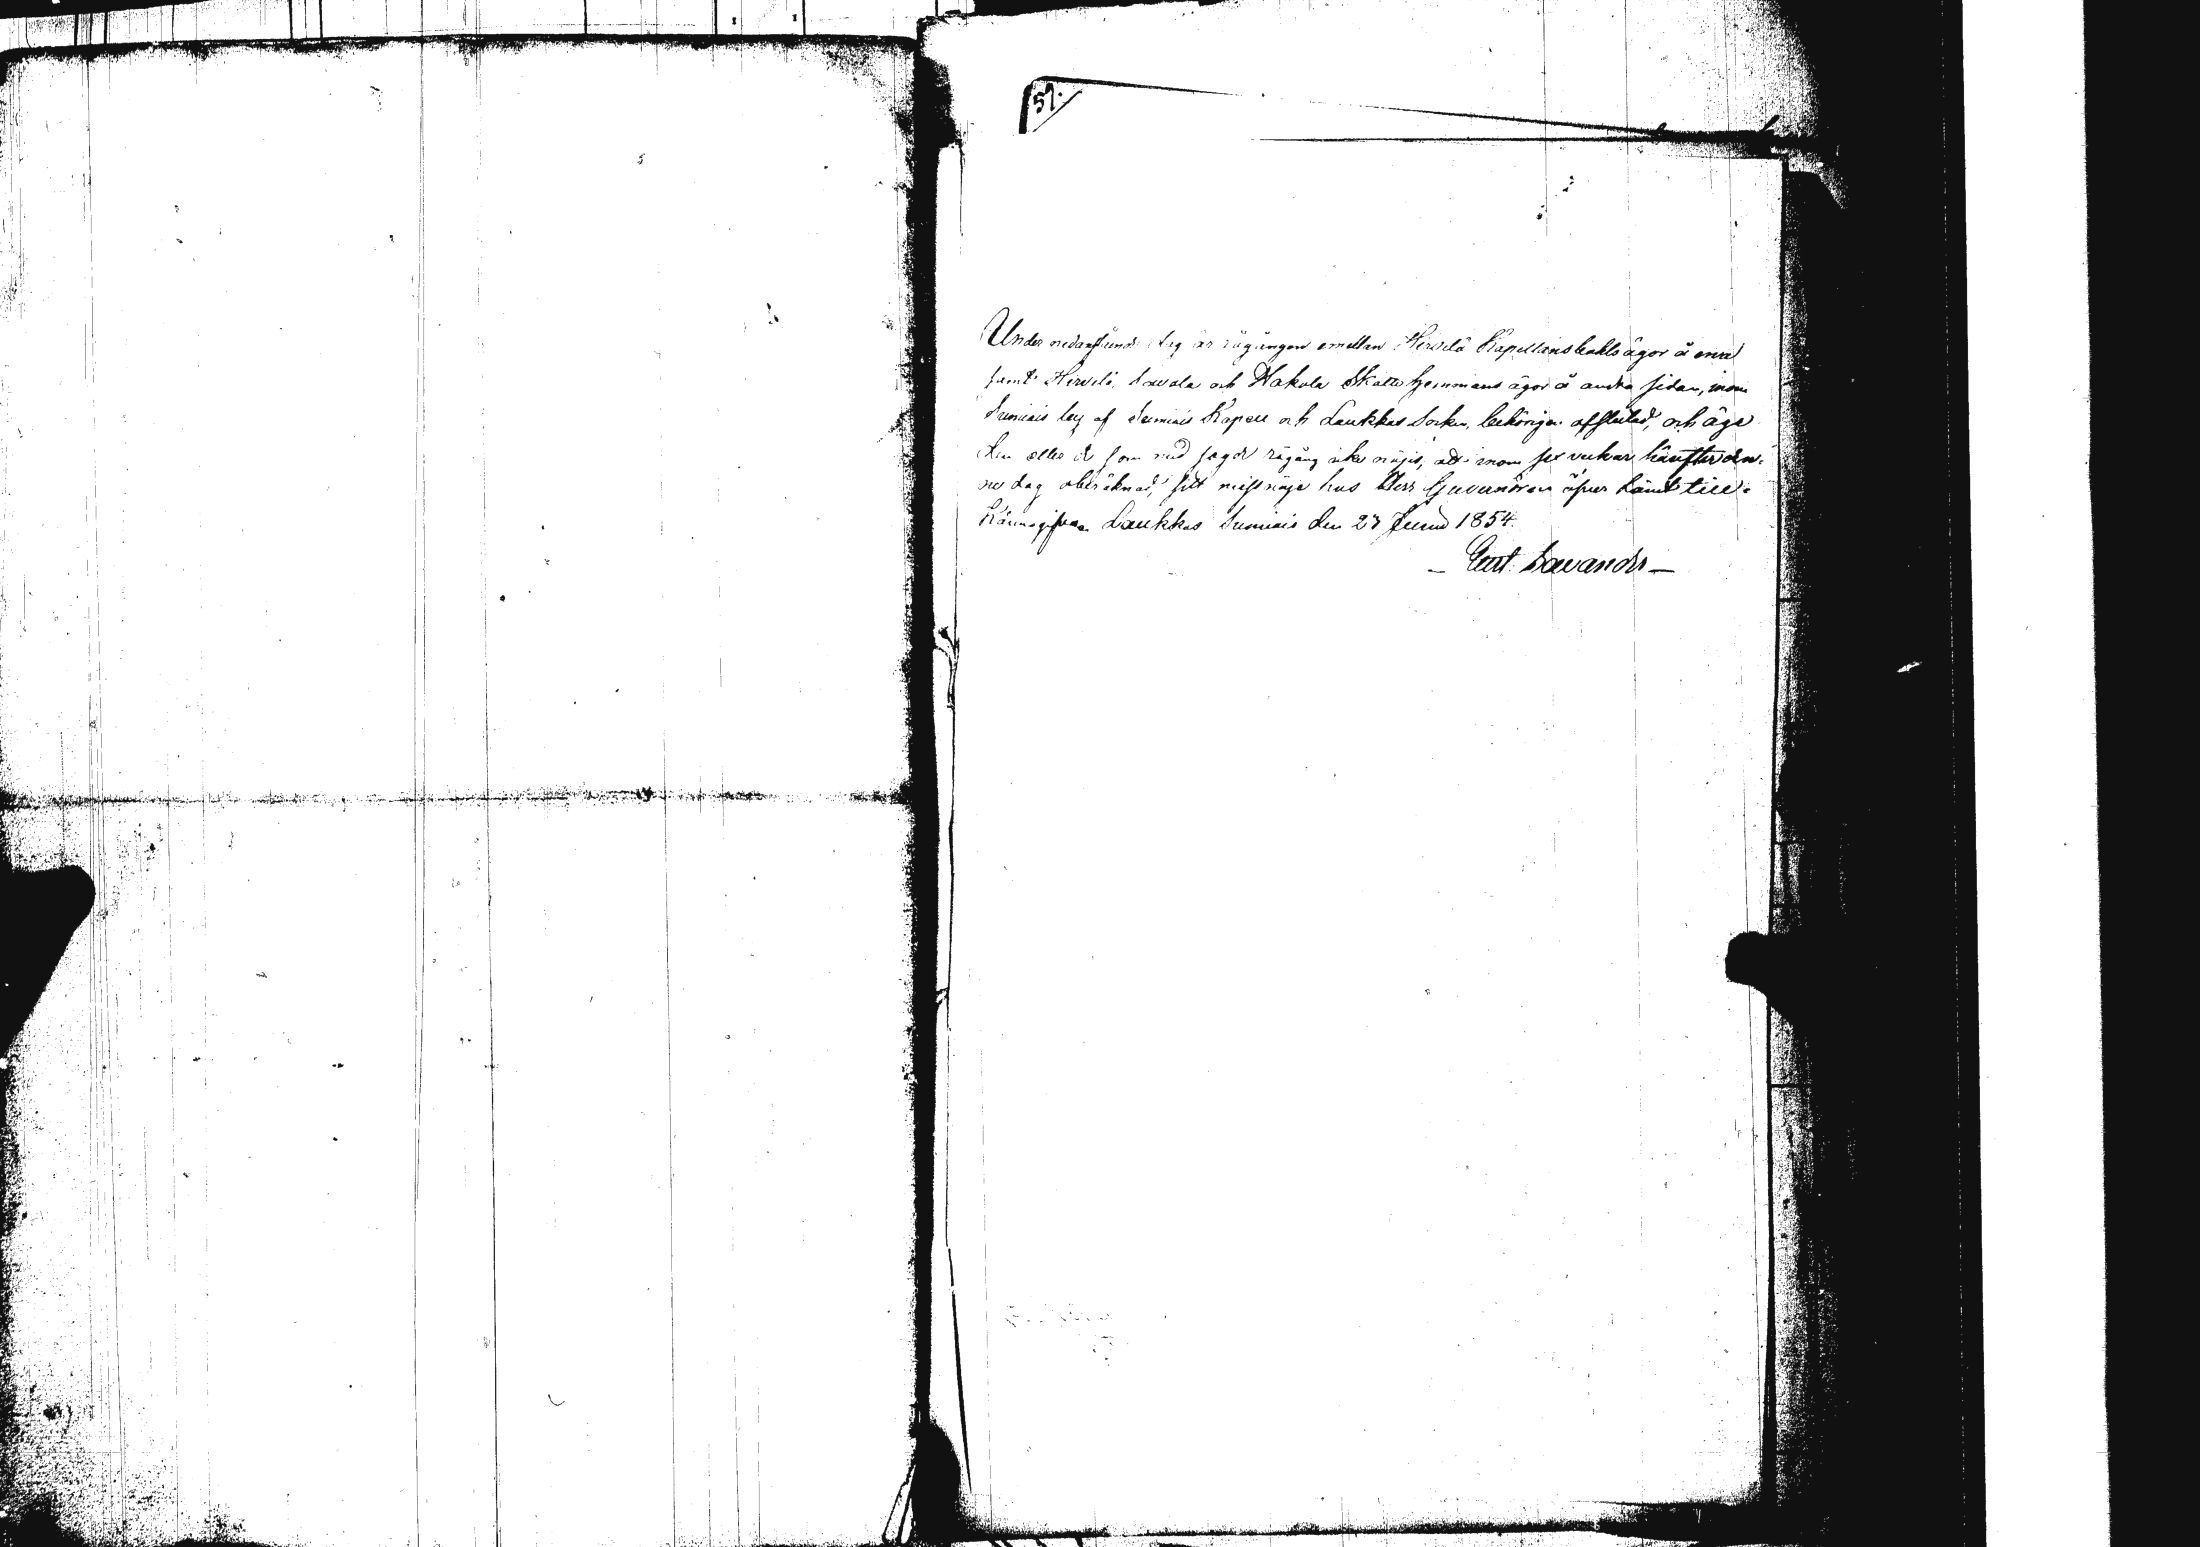 57.
Under nedanstående dag är rågången emellan Hirvelä Kapellansbohls ägor å ena
samt Hirvelä, Savola och Hakola Skatte hemmans ägor å andra sidan, inom
Sumiais by af Sumiais Kapell och Laukkas Socken, behörigen afslutad, och äge
den eller de som med sagde rågång icke nöjes, att inom sex veckor härefter den-
ne dag oberäknad, sitt missnöje hos Herr Guvernören öfver Länet till-
kännagifva. Laukkas Sumiais den 27 Junii 1854.
Gust. Lavander